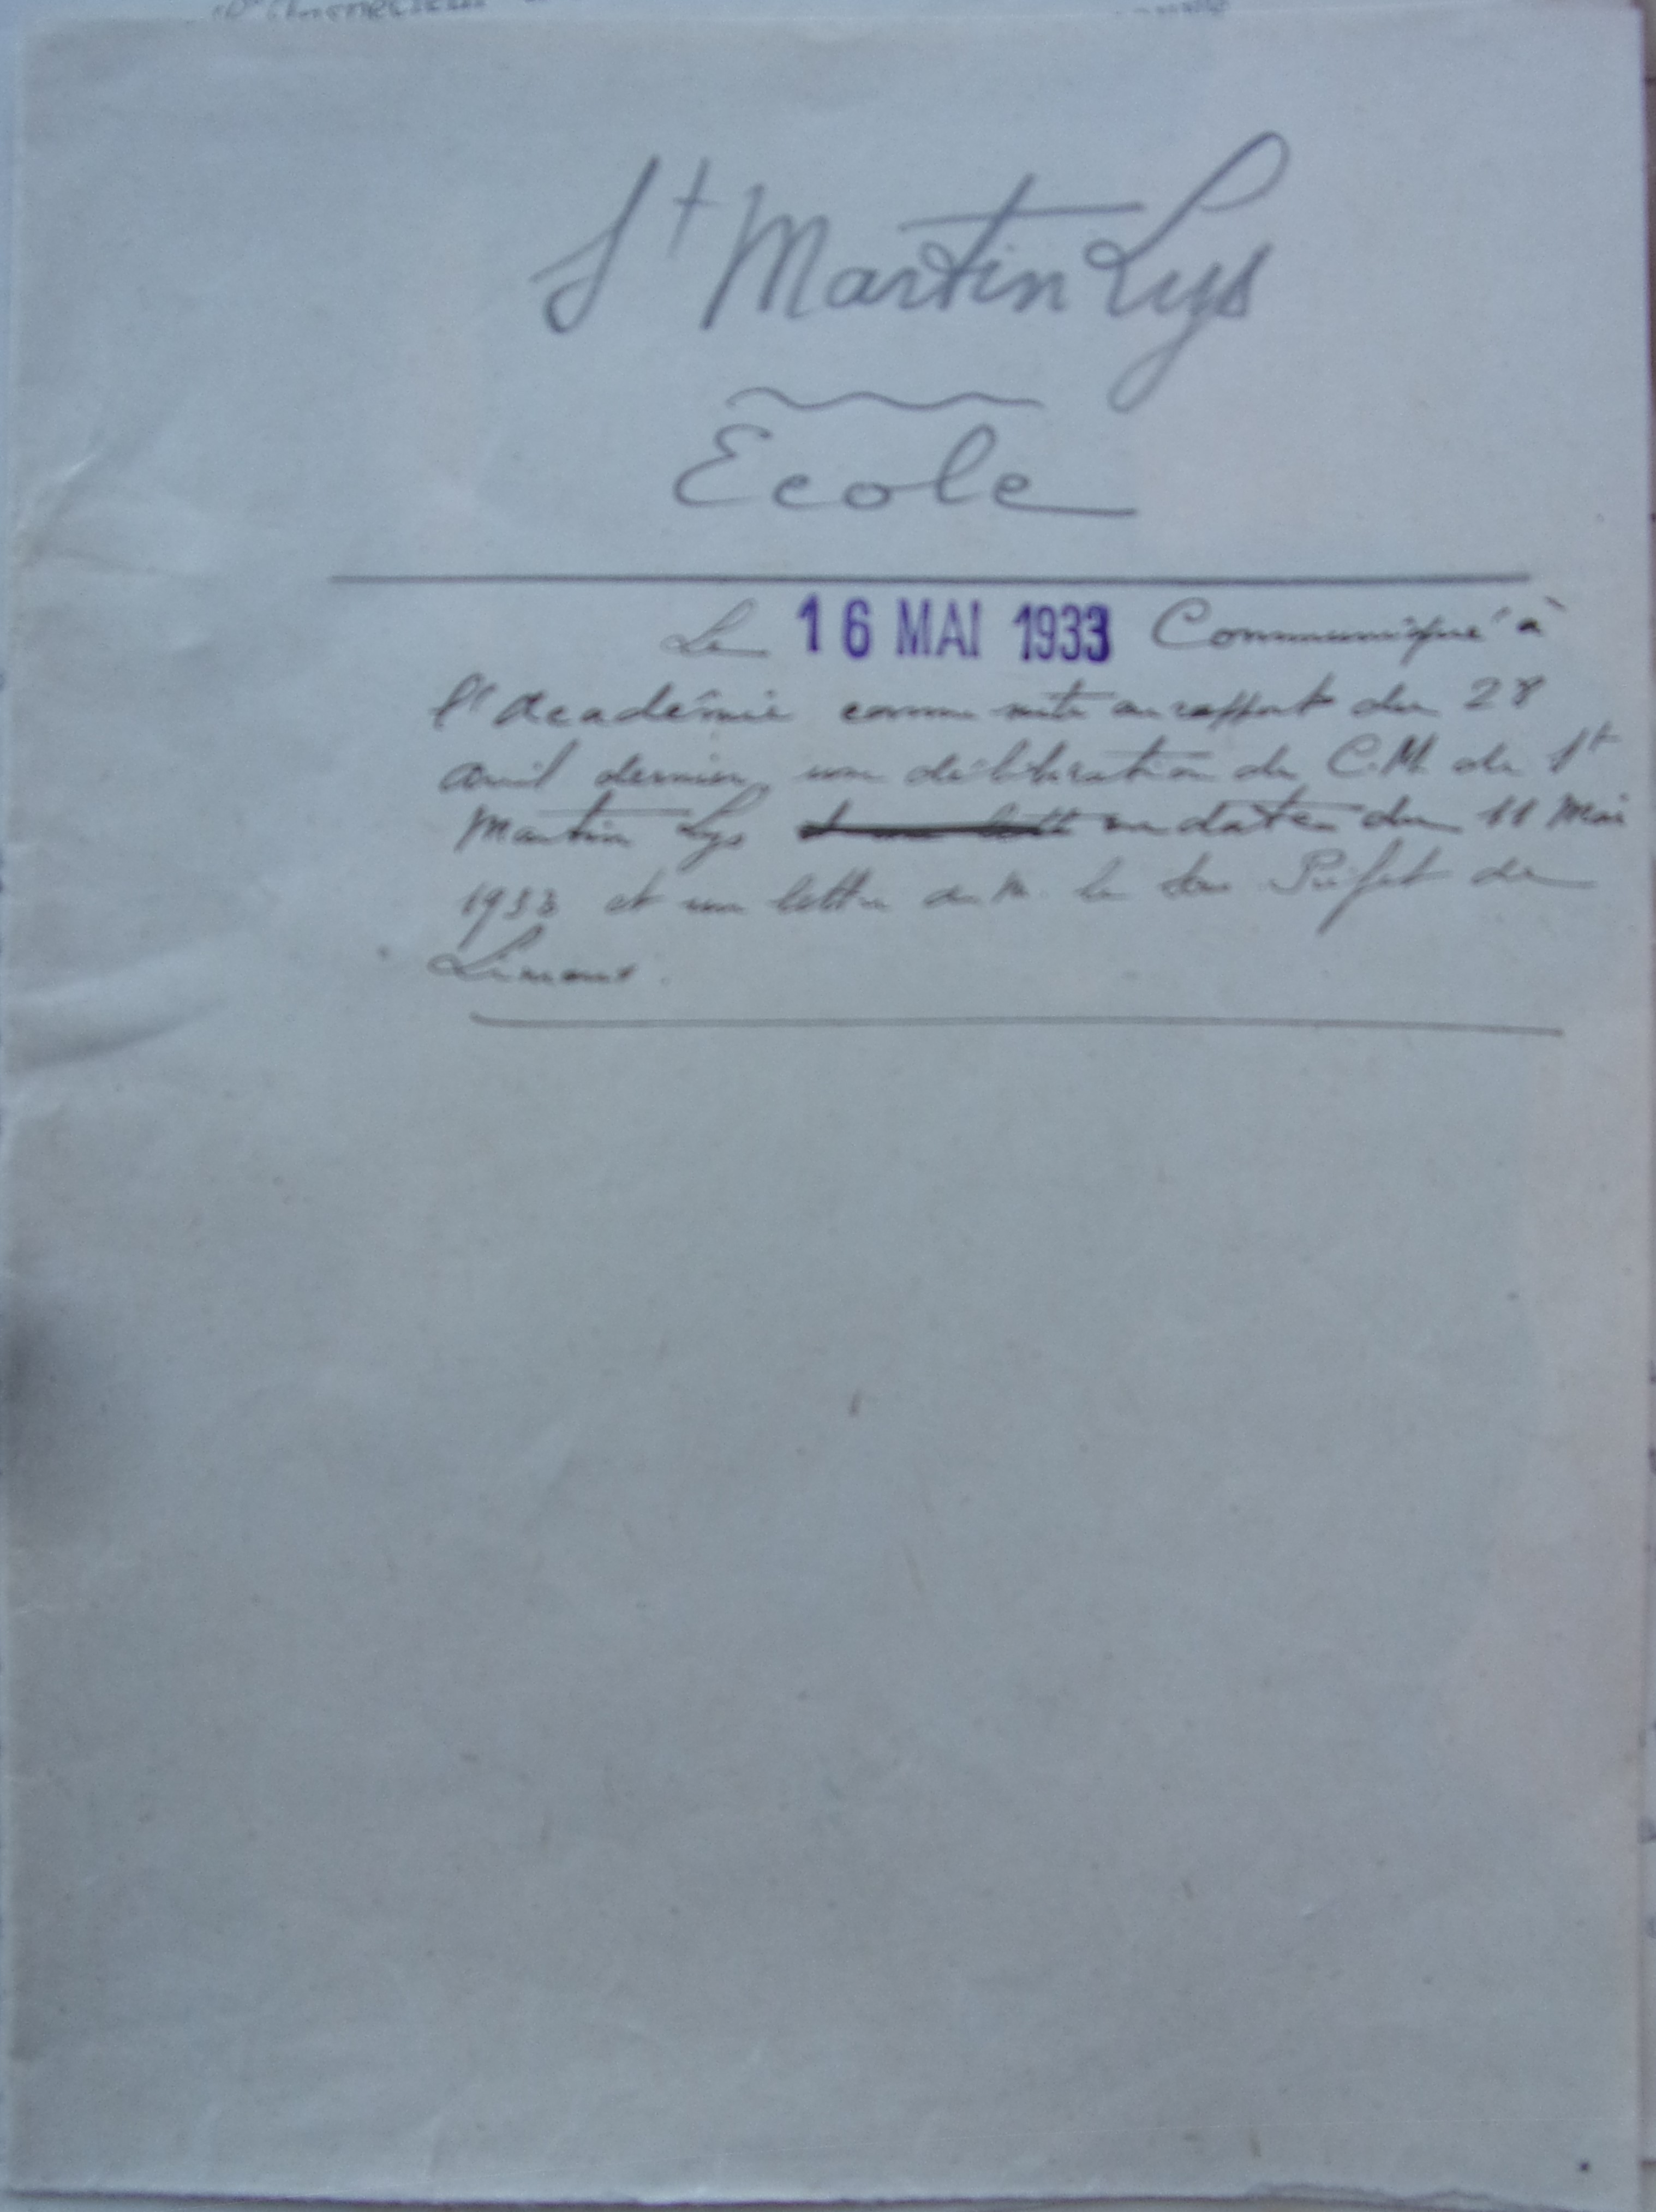 St Martin Lys
Ecole
Le 16 MAI 1933 Communiqué à
l'Académie comme suite au rapport du 28
avril dernier, une délibération du C.M. de St
Martin Lys en date du 11 Mai
1933 et une lettre de M. le Sous Préfet de
Limoux.